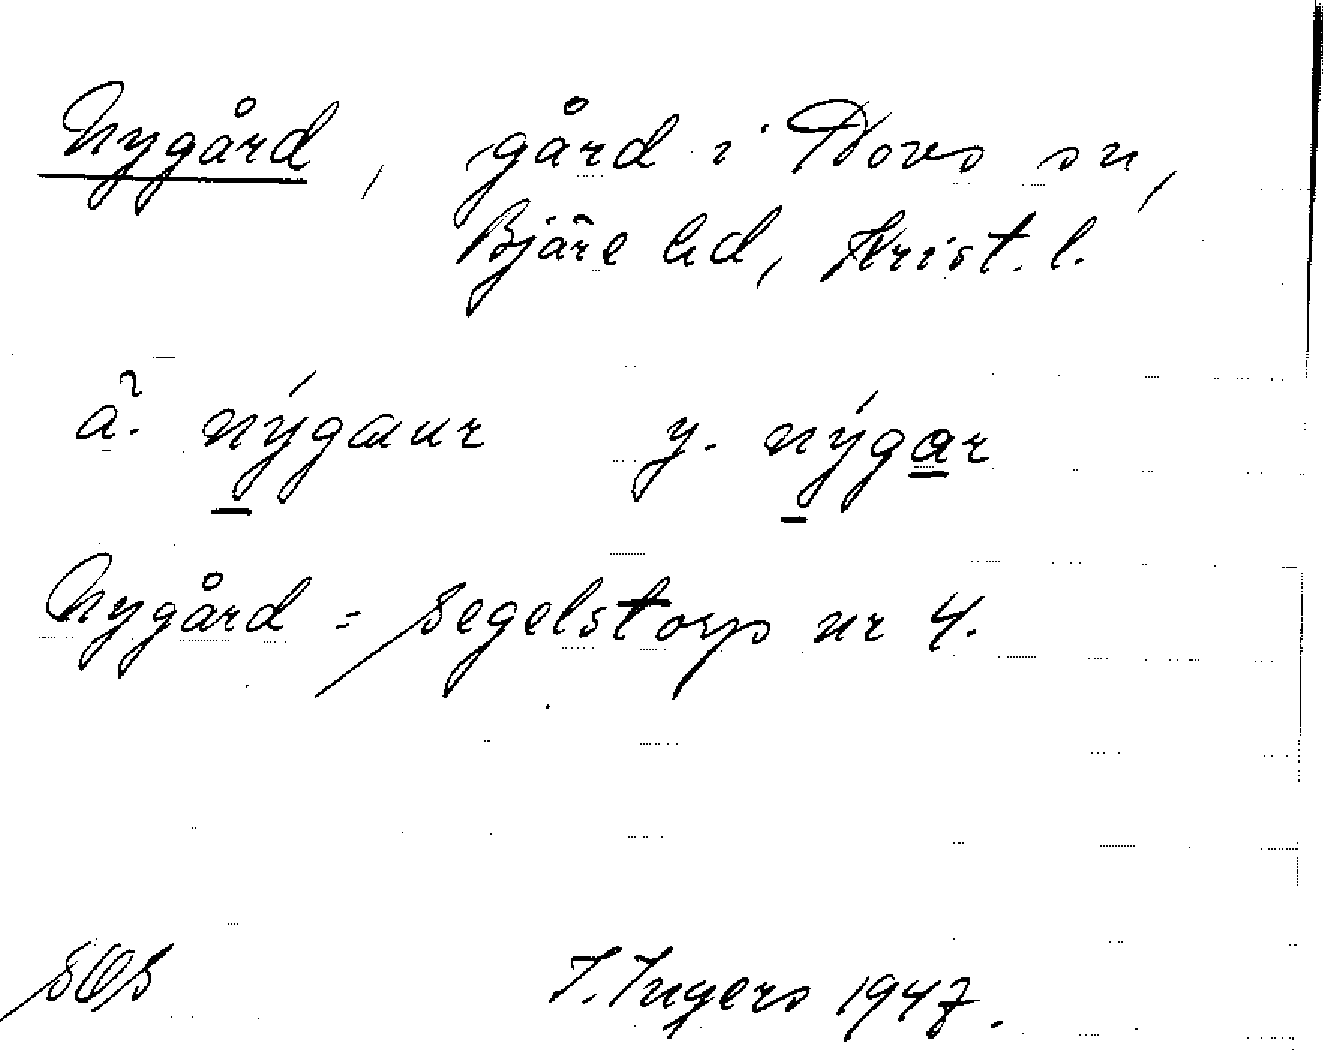 Nygård, gård i Hovs sn,
Bjäre hd, Krist. l.
ä. nýgaur y. nýgar
Nygård = Segelstorp nr 4.
SOS I. Ingers 1947.